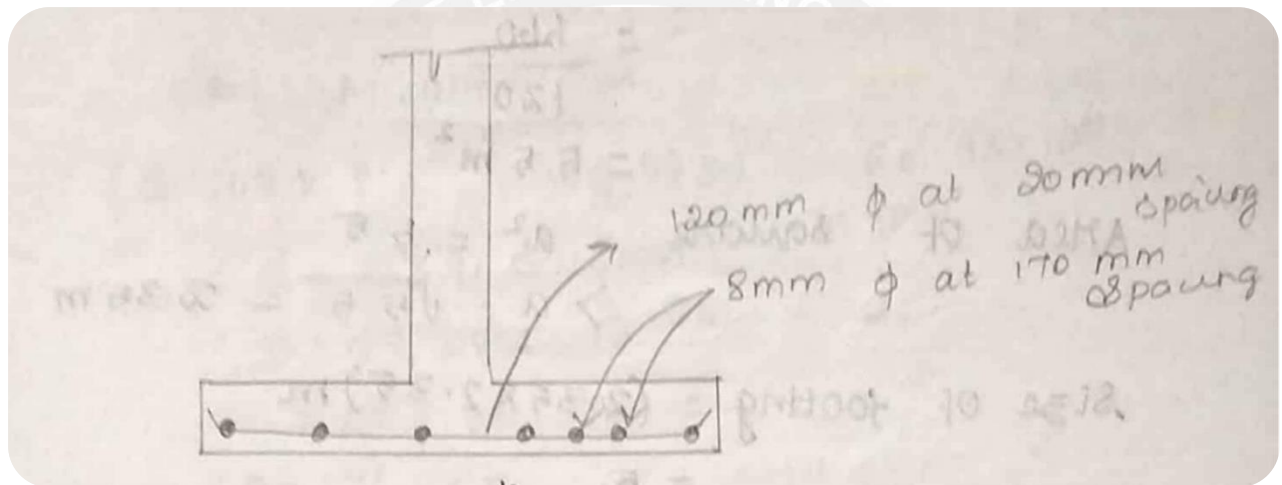 120 mm ϕ at 20mm
spacing
8mm ϕ at 170 mm
spacing